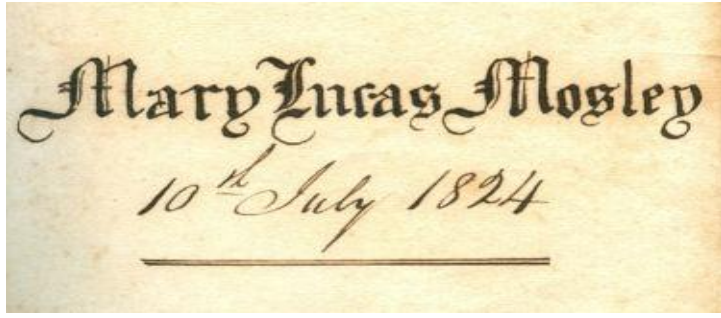 Mary Lucas Mosley
10th July 1824